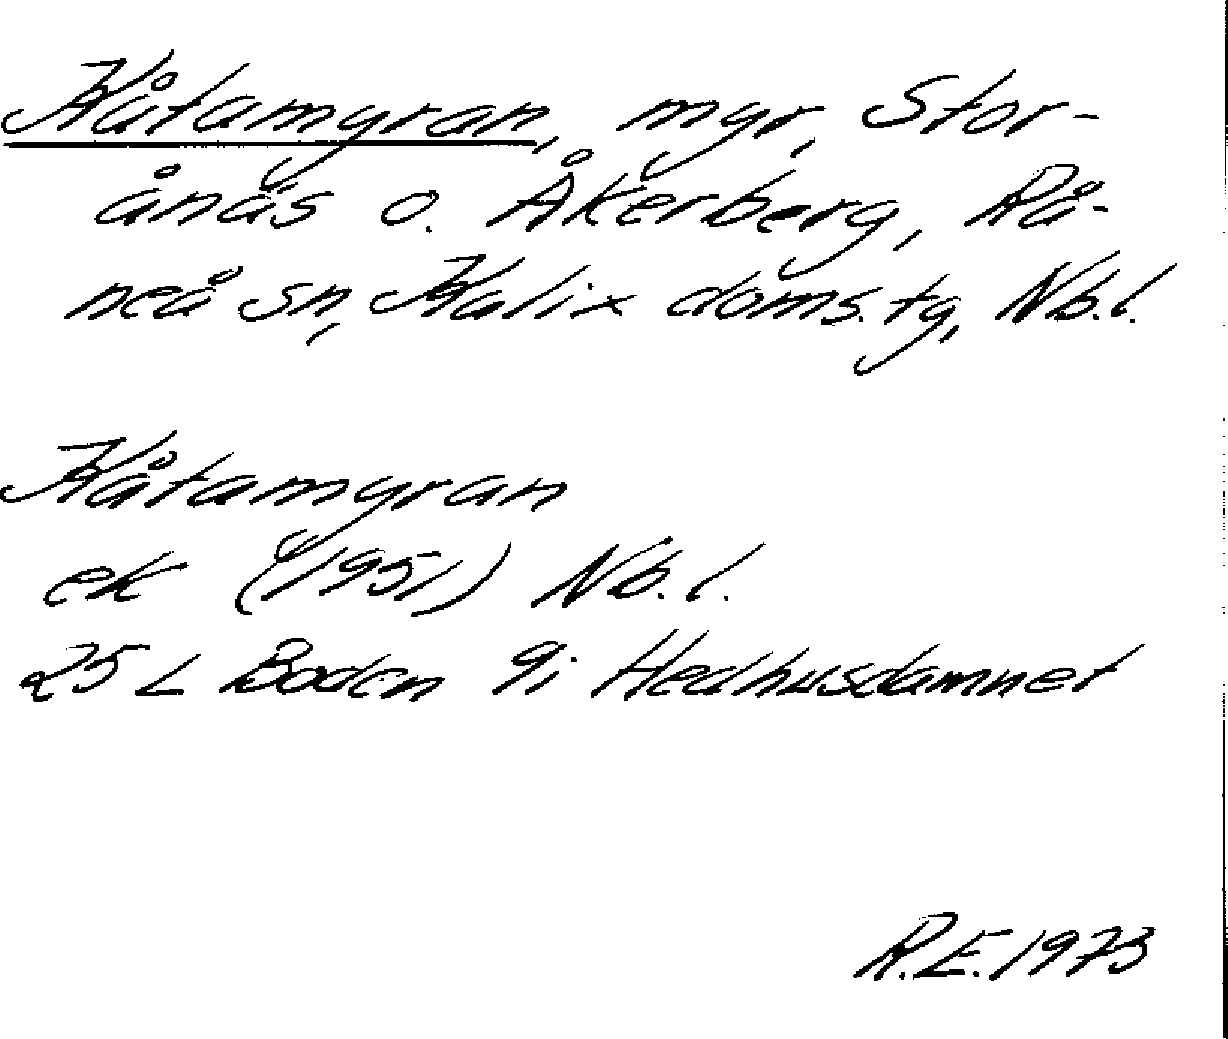 Kåtamyran, myr, Stor-
ånäs o. Åkerberg, Rå-
neå sn, Kalix doms.tg, Nb.l.
Kåtamyran
ek (1951) Nb.l.
25 L Boden 9i Hedhusdamnet
R.E. 1973